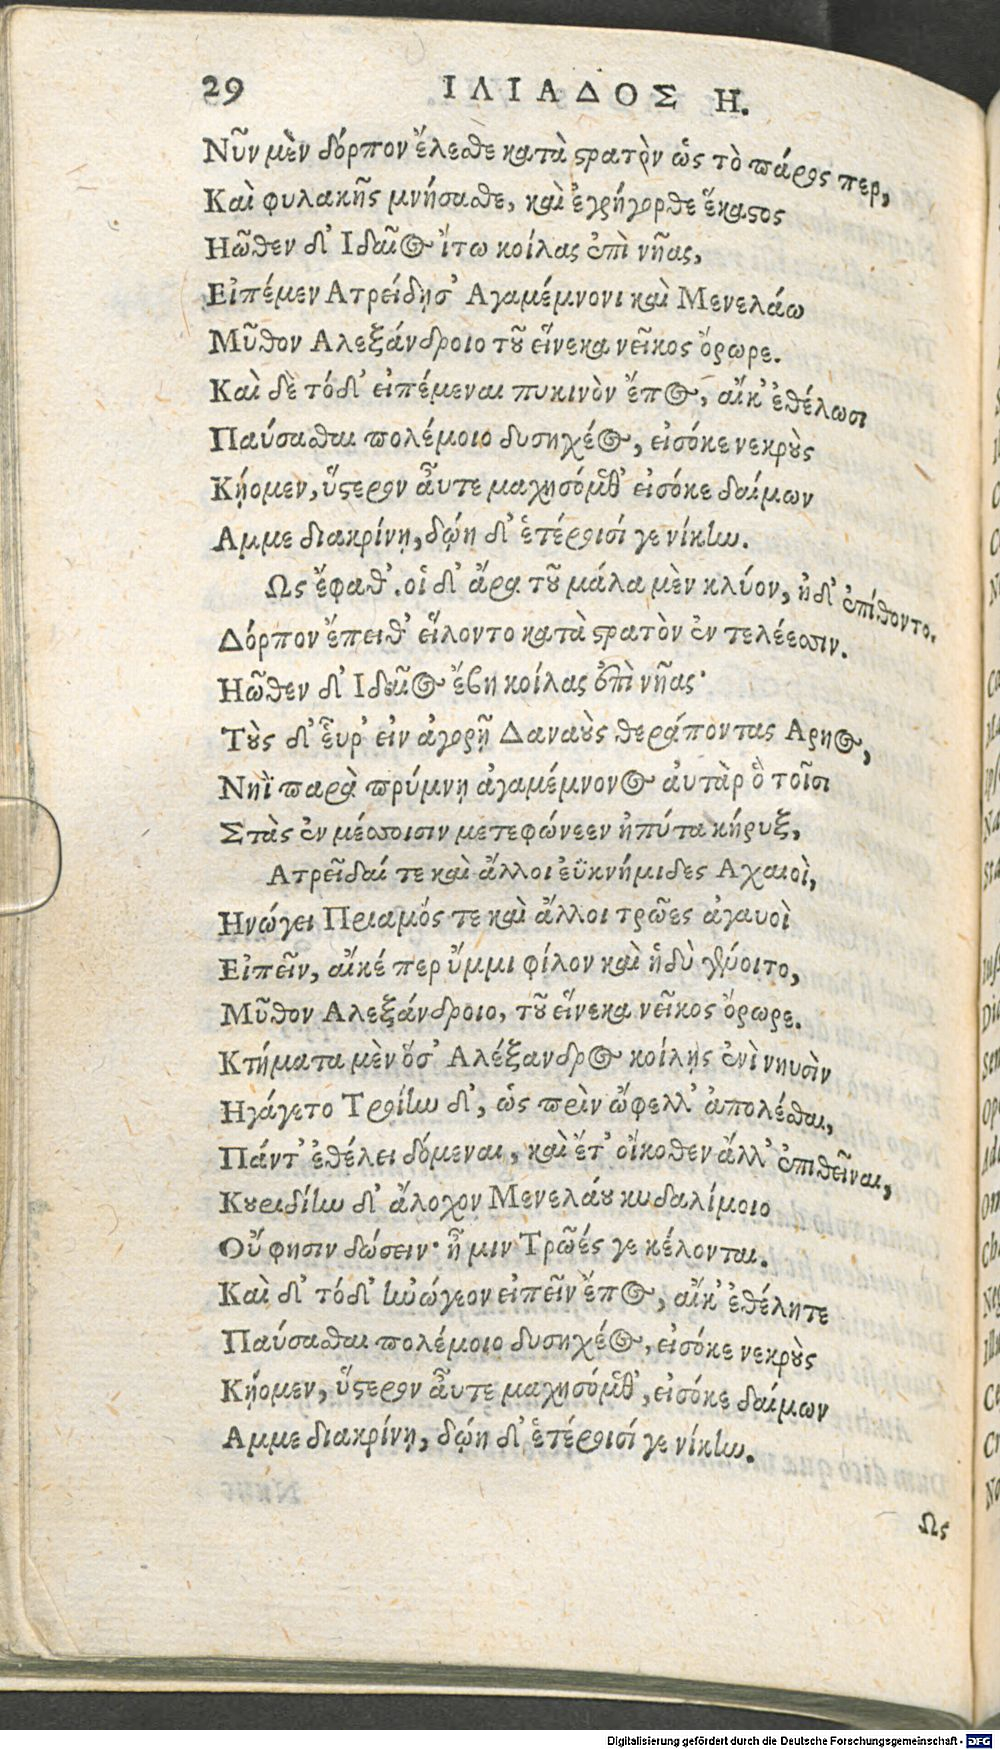 29 ΙΛΙΑΔΟΣ Η.
Νῦν μὲν δόρπον ἔλεσθε κατὰ στρατὸν ὡς τὸ πάρος περ,
Καὶ φυλακῆς μνήσασθε, καὶ ἐγρήγορθε ἕκαστος
Ηῶθεν δ' Ιδαῖος ἴτω κοίλας ἐπὶ νῆας,
Εἰπέμεν Ατρείδῃσ' Αγαμέμνονι καὶ Μενελάω
Μῦθον Αλεξάνδροιο τοῦ εἵνεκα νεῖκος ὄρωρε.
Καὶ δὲ τόδ' εἰπέμεναι πυκινὸν ἔπος, αἴκ' ἐθέλωσι
Παύσασθαι πολέμοιο δυσηχέος, εἰσόκε νεκροὺς
Κήομεν, ὕστερον αὖτε μαχησόμεθ' εἰσόκε δαίμων
Αμμε διακρίνῃ, δῴη δ' ἑτέροισί γε νίκην.
Ως ἔφαθ'. οἱ δ' ἄρα τοῦ μάλα μὲν κλύον, ἠδ' ἐπίθοντο.
Δόρπον ἔπειθ' εἵλοντο κατὰ στρατὸν ἐν τελέεσσιν.
Ηῶθεν δ' Ιδαῖος ἔβη κοίλας ἐπὶ νῆας·
Τοὺς δ' εὗρ' εἰν ἀγορῇ Δαναοὺς θεράποντας Αρηος,
Νηῒ παρὰ πρύμνῃ ἀγαμέμνονος αὐτὰρ ὃ τοῖσι
Στὰς ἐν μέσσοισιν μετεφώνεεν ἠπύτα κήρυξ,
Ατρεῖδαί τε καὶ ἄλλοι ἐϋκνήμιδες Αχαιοὶ,
Ηνώγει Πριαμός τε καὶ ἄλλοι τρῶες ἀγαυοὶ
Εἰπεῖν, αἴκέ περ ὔμμι φίλον καὶ ἡδὺ γένοιτο,
Μῦθον Αλεξάνδροιο, τοῦ εἵνεκα νεῖκος ὄρωρε.
Κτήματα μὲν ὅσ' Αλέξανδρος κοίλῃς ἐνὶ νηυσὶν
Ηγάγετο Τροίην δ', ὡς πρὶν ὤφελλ' ἀπολέσθαι,
Πάντ' ἐθέλει δόμεναι, καὶ ἔτ' οἴκοθεν ἄλλ' ἐπιθεῖναι,
Κουριδίην δ' ἄλοχον Μενελάου κυδαλίμοιο
Οὔ φησιν δώσειν· ἦ μιν Τρῶές γε κέλονται.
Καὶ δ' τόδ' ἠνώγεον εἰπεῖν ἔπος, αἴκ' ἐθέλητε
Παύσασθαι πολέμοιο δυσηχέος, εἰσόκε νεκροὺς
Κήομεν, ὕστερον αὖτε μαχησόμεθ', εἰσόκε δαίμων
Αμμε διακρίνῃ, δῴη δ' ἑτέροισί γε νίκην.
Ως
Digitalisierung gefördert durch die Deutsche Forschungsgemeinschaft - DFG